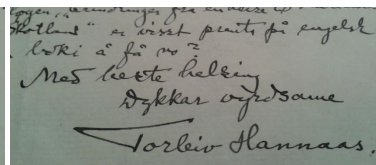 Skotland" er visst prenta på engelsk
boki å få no?
Med beste helsing
Dykkar vyrdsame
Torleiv Hannaas.